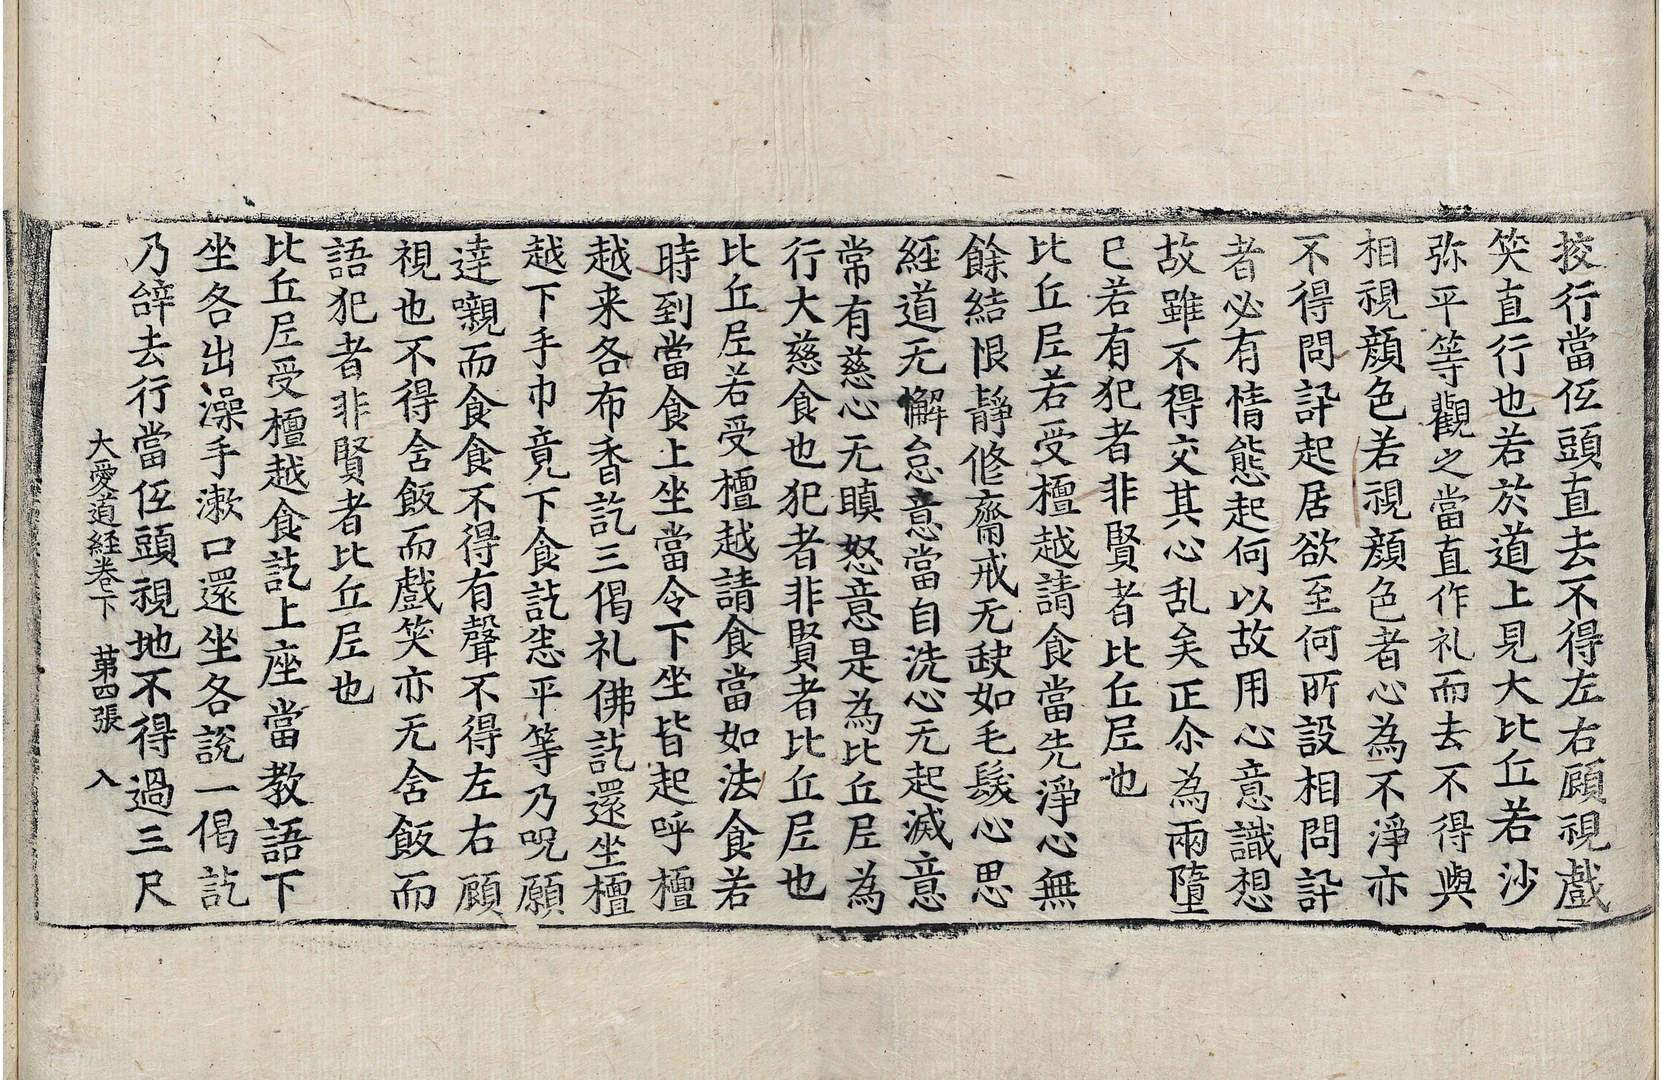 挍行當伍頭直去不得左右顧視戲
笑直行也若於道上見大比丘若沙
弥平等觀之當直作礼而去不得與
相視顔色若視顔色者心為不淨亦
不得問訊起居欲至何所設相問訊
者必有情態起何以故用心意識想
故雖不得交其心乱矣正尒為兩墮
巳若有犯者非賢者比丘𡰱也
比丘𡰱若受檀越請食當先淨心無
餘結恨靜修齋戒无缺如毛髮心思
經道无懈怠意當自洗心无起滅意
常有慈心无瞋怒意是為比丘𡰱為
行大慈食也犯者非賢者比丘𡰱也
比丘𡰱若受檀越請食當如法食若
時到當食上坐當令下坐皆起呼檀
越来各布香訖三偈礼佛訖還坐檀
越下手巾竟下食訖悉平等乃呪願
達嚫而食食不得有聲不得左右顧
視也不得舍飯而戲笑亦无舍飯而
語犯者非賢者比丘𡰱也
比丘𡰱受檀越食訖上座當教語下
坐各出澡手漱口還坐各說一偈訖
乃辞去行當伍頭視地不得過三尺
大愛道経巻下 苐四張 入